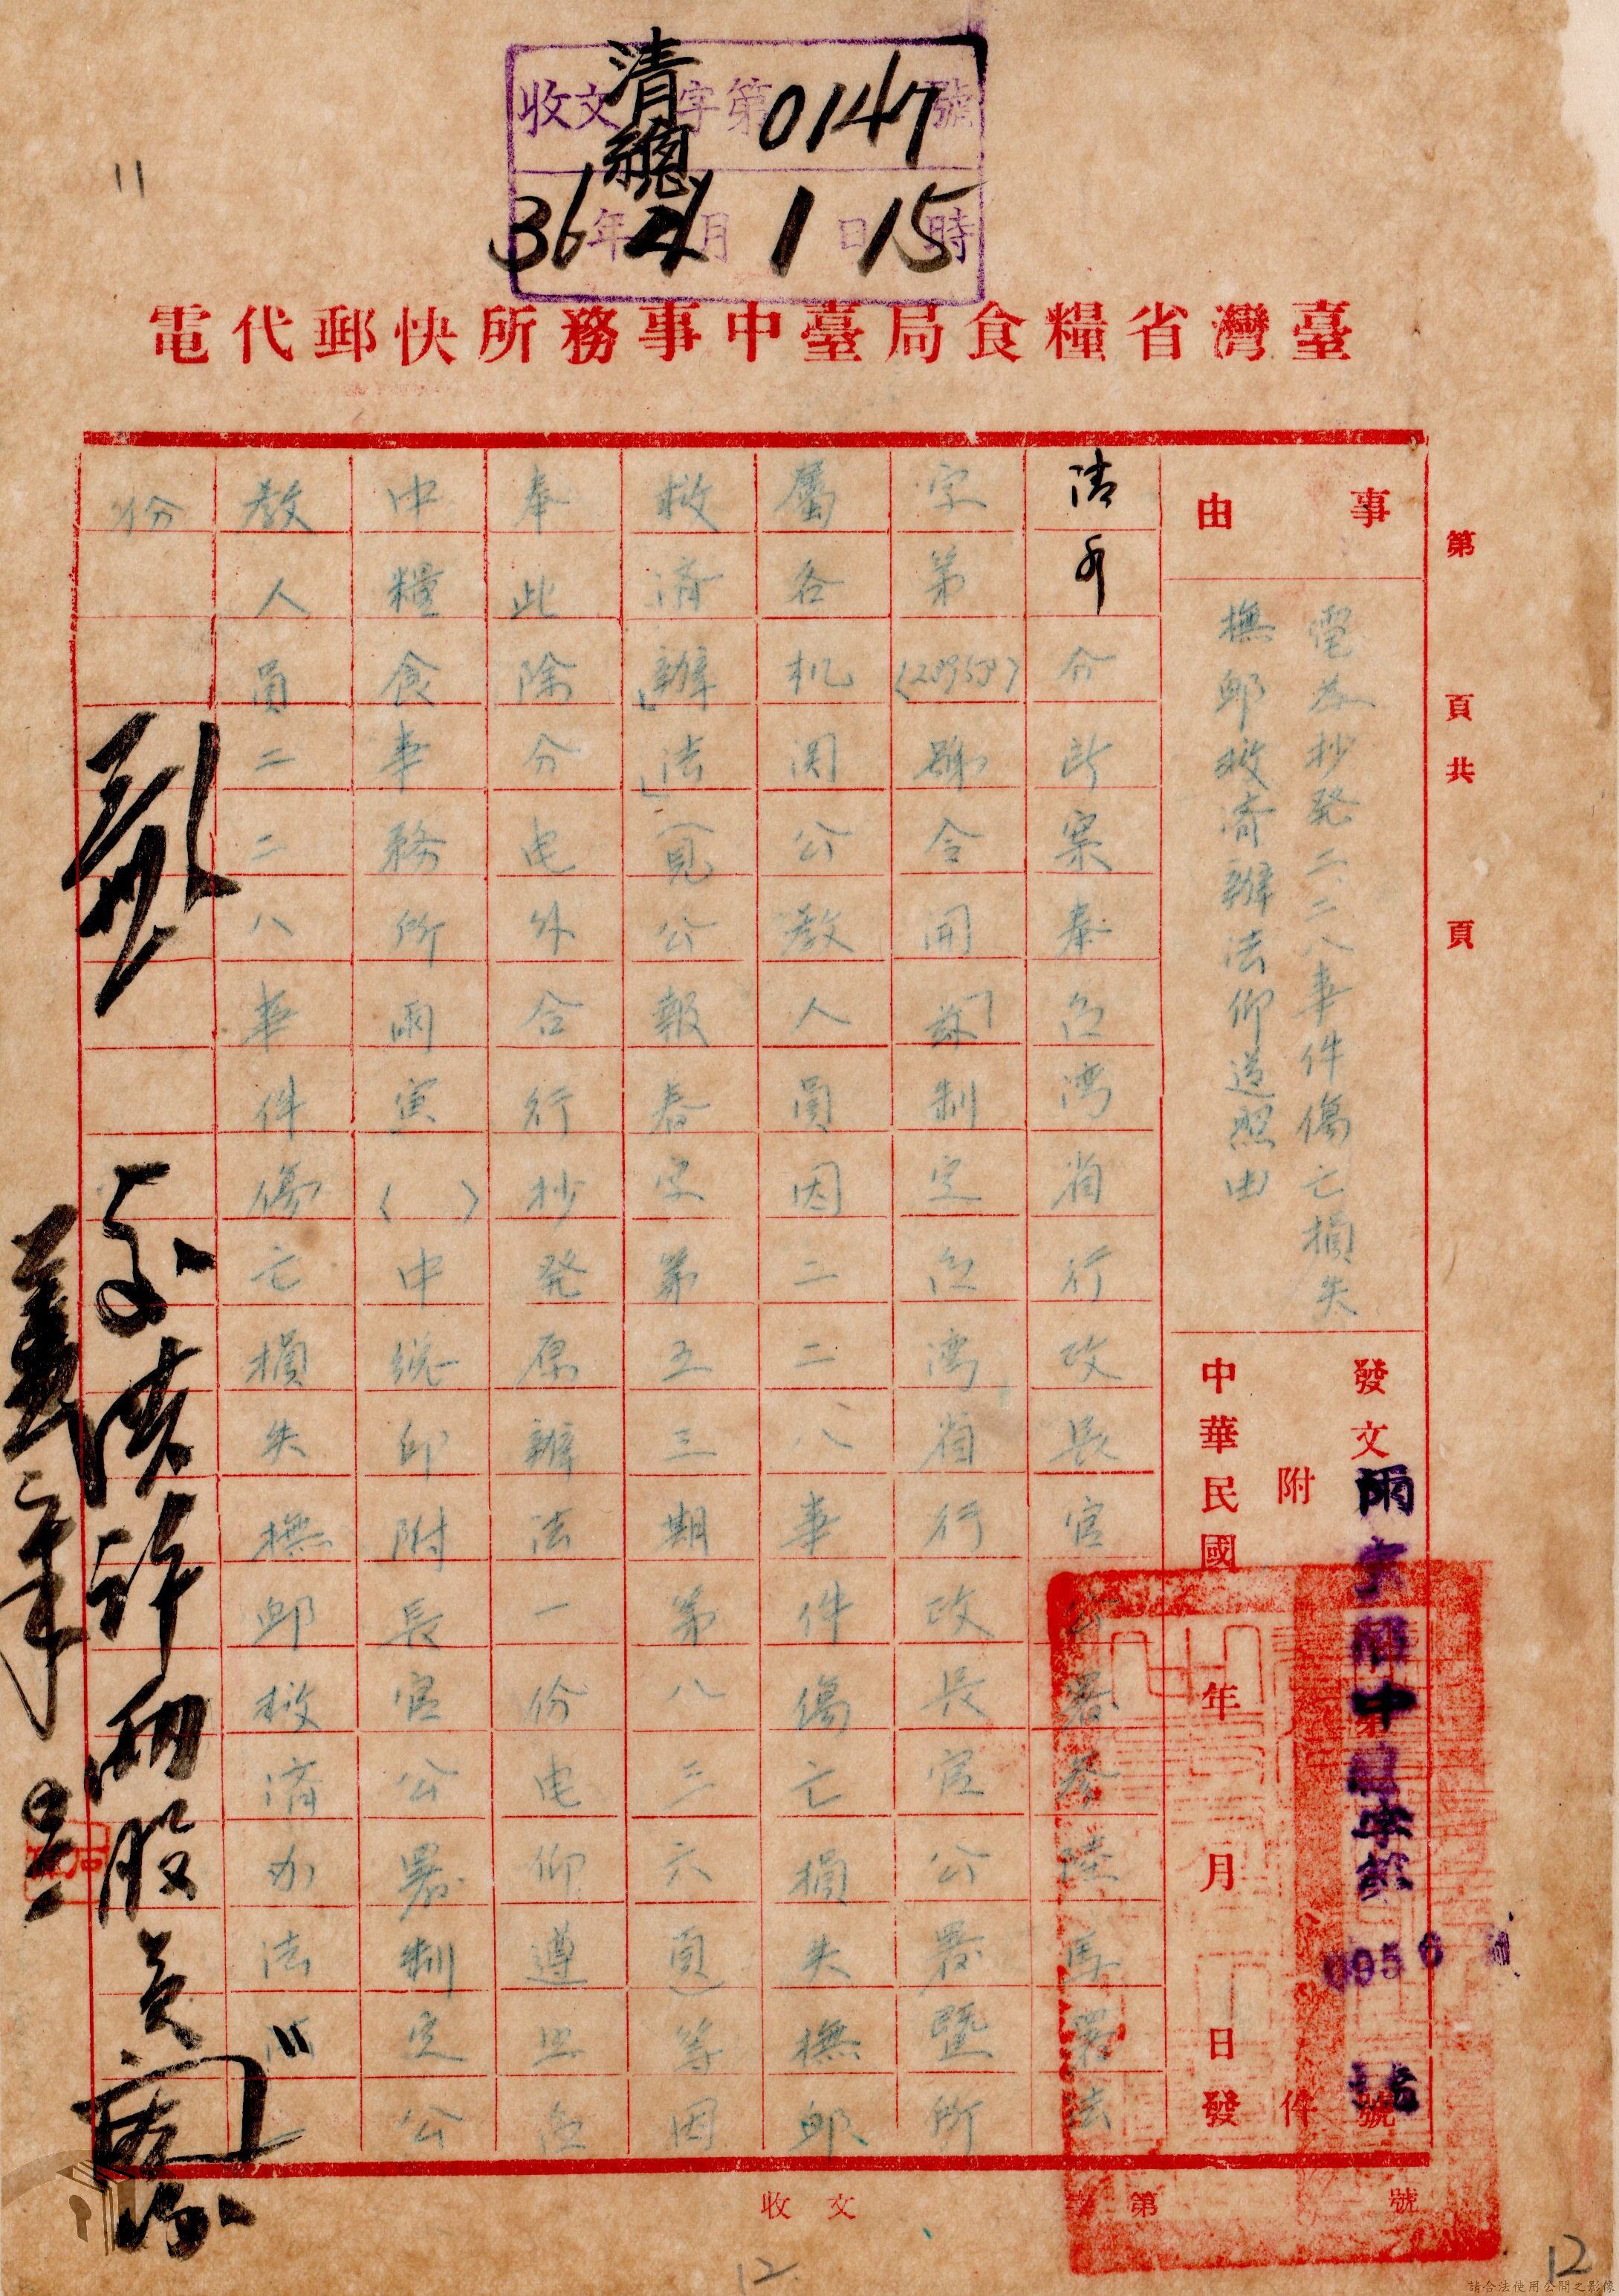 收文清總字第0147號
36年4月1日15時
臺灣省糧食局臺中事務所快郵代電
第 頁共 頁
事由
電為抄發二二八事件傷亡損失
撫卹救濟辦法仰遵照由
發文 號
0956
附 件
中華民國 年 月 日發
清水分所案奉台湾省行政長官公署參陸馬署法
字第(28958)號令開「茲制定台湾省行政長官公署暨所
屬各机関公教人員因二二八事件傷亡損失撫卹
救済辦法」(見公報春字第五三期第八三六頁)等因
奉此除分电外合行抄発原辦法一份电仰遵照台
中糧食事務所雨寅( )中総印附長官公署制定公
教人員二二八事件傷亡損失撫卹救済办法
份
收文 第 號
12
12
請合法使用公開之影像